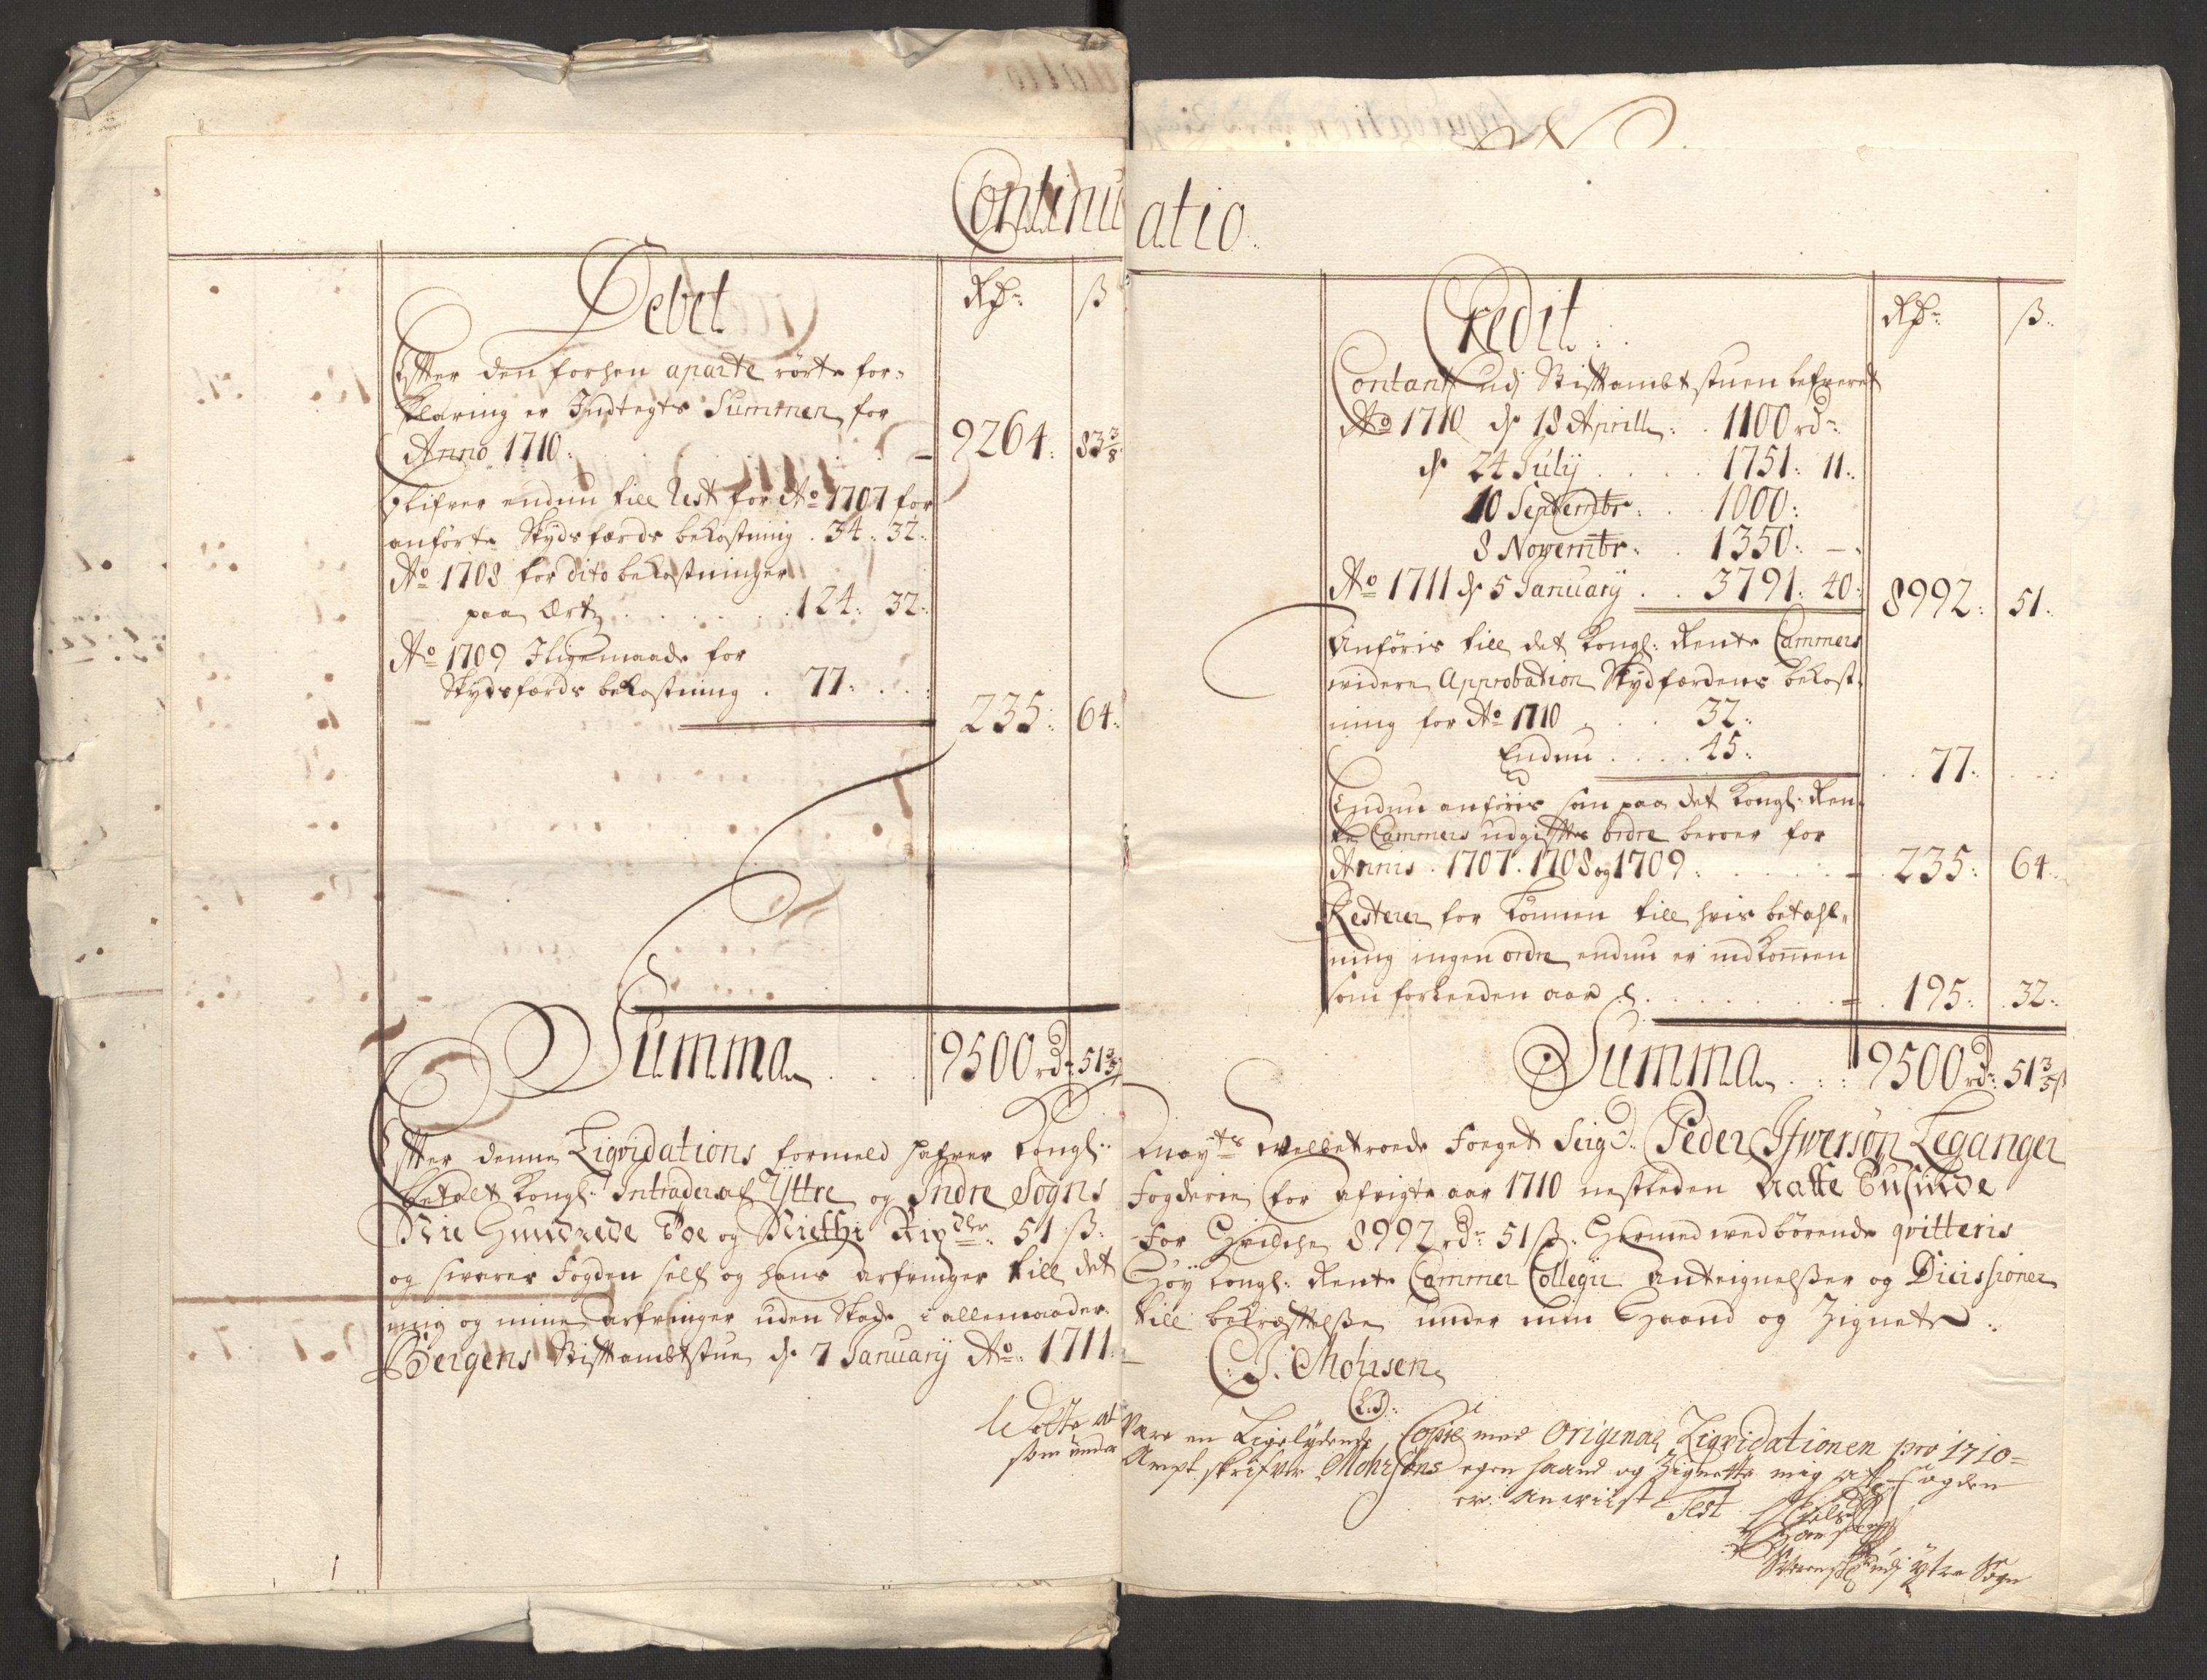 Continuatio.
Debet
Rdr: ß
Efter den forhen aparte rørte for-
klaring er Indtegts Summen for
Anno 1710: 9264: 83 3/8
Blifver endnu till Rest for Ao 1707 for
anførte Skydsfærds bekostning . 34: 32:
Ao 1708 for dito bekostninger
paa Ært . . . 124: 32:
Ao 1709 Iligemaade for
Skydsfærds bekostning . 77: . .
235: 64:
Summa . . . 9500 rd: 51 3/5
Credit:
Rdr: ß:
Contant udj Stiftambtstuen lefveret
Ao 1710 d 18 Aprill: . 1100 rd:
d 24 Julij . . . . 1751: 11:
10 Septembr: . . 1000:
8 Novembr: . 1350: –:
Ao 1711 d 5 Januarij . . 3791: 40: 8992: 51:
Anføris till det Kongl: Rente Cammers
widere Approbation Skydfærdens bekost-
ning for Ao 1710 . . . 32:
Endnu . . . . 45: 77:
Endnu anføris som paa det Kongl: Ren-
te Cammers udgiffts ordre beroer for
Annis . 1707. 1708 og 1709: 235: 64:
Resterer for Kommen till hvis betahl-
ning ingen ordre endnu er indkommen
som forleeden aar . . . 195: 32:
Summa . . : 9500 rd: 51 3/5 ß
Efter denne Liqvidations formeld hafver Kongl: Mayts welbetroede Foeget Seigr: Peder Ifwersøn Leganger
betalt Kongl: Intrader af Yttre og Indre Sogns Fogderie for afvigte aar 1710 nestleden Aatte Tusinde
Nie Hundrede Toe og Niethi Rixdlr: 51 ß: For Hvilche 8992 rdr 51 ß. Hermed wedbørende qvitteris
og svarer Fogden self og hans Arfvinger till det Høy Kongl: Rente Cammer Collegii Anteignelsser og Dicissioner
mig og mine Arfvinger uden Skade i allemaader. till bekræfftelsse under min Haand og Zignete.
Bergens Stiftambtstue d. 7 Januarij Ao: 1711: C. J. Mohrsen
(L.S):
at Vare en Ligelydende Copie med Original Liqvidationen pro 1710=
som under Ampt skrifver Mohrsöns egen haand og Zignette mig af fogden
er anviist Test
udj ytre Sogn